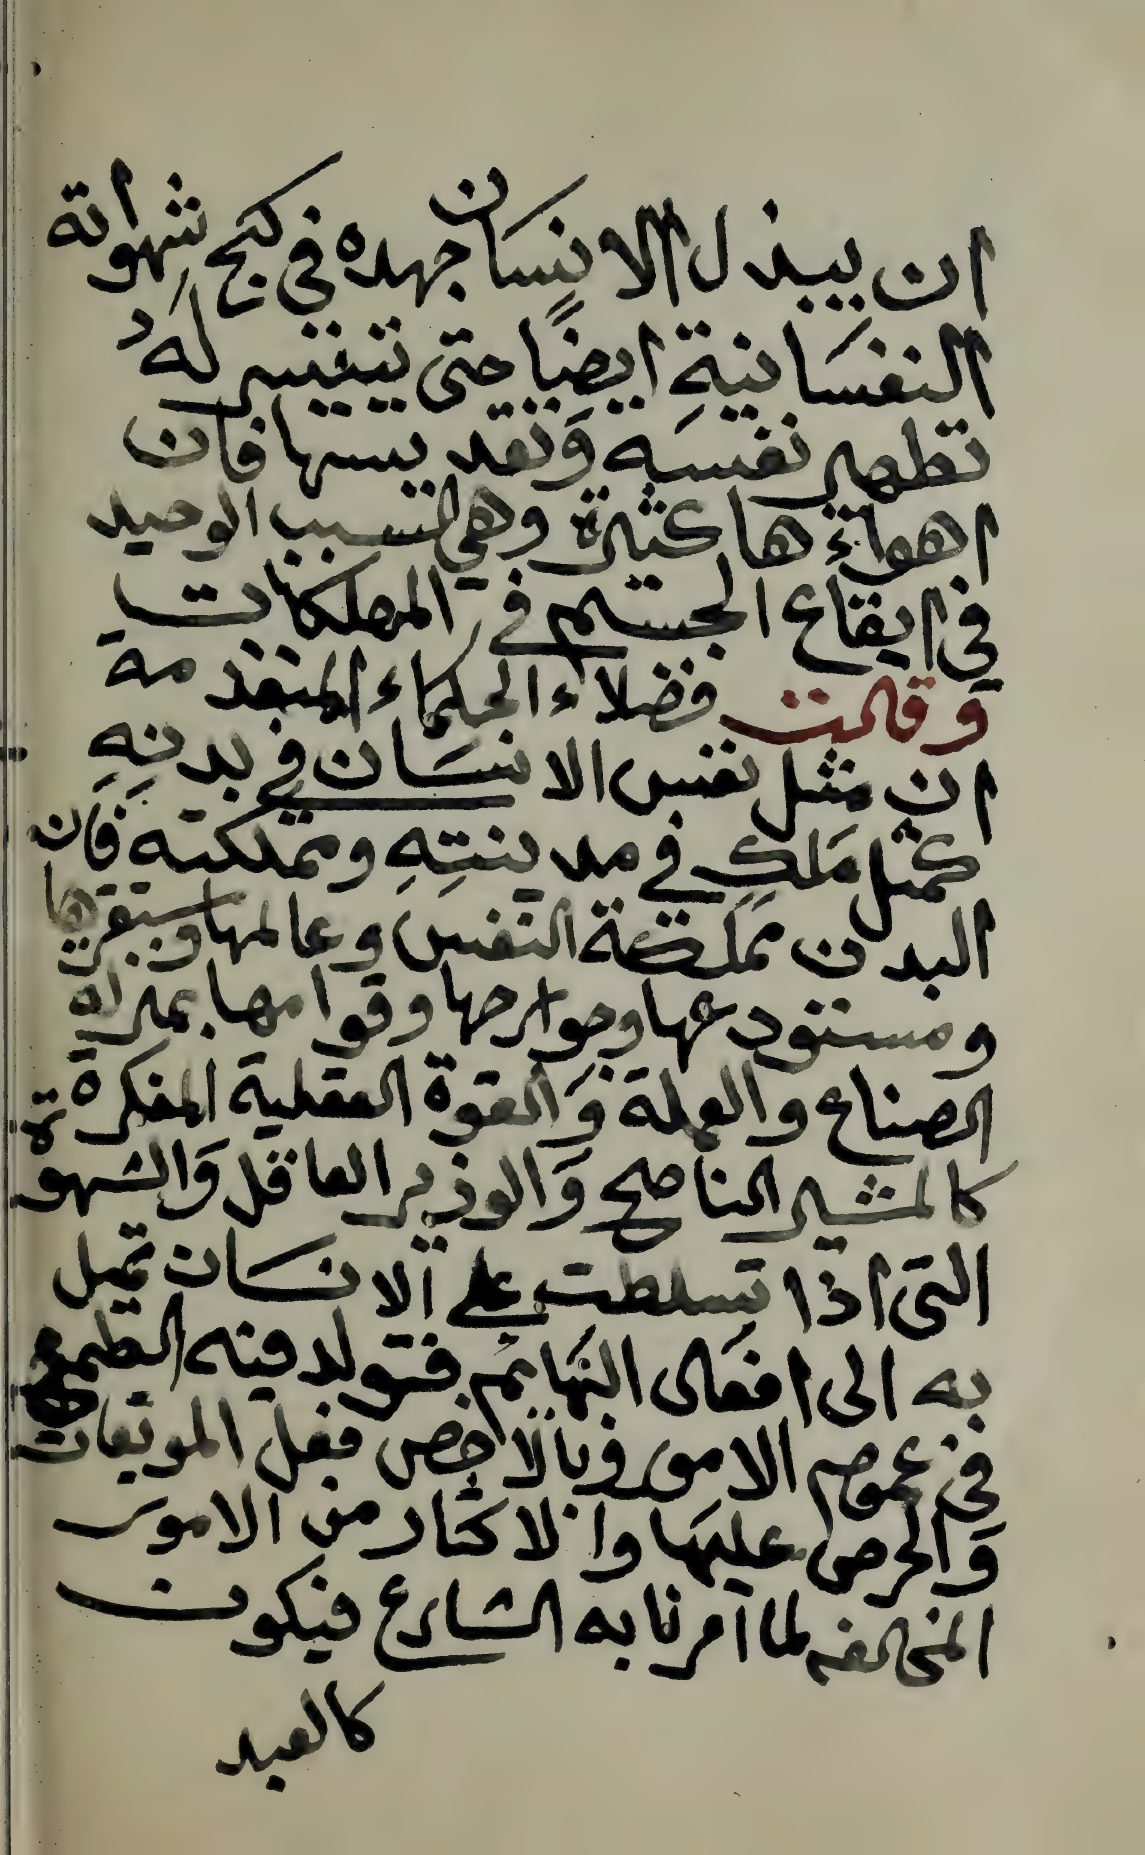 ان يبذل الانسان جهده في كبح شهواته
النفسانية ايضا حتى تتيسر لهُ
تطهير نفسه وتقديسها فان
اهواءها كثيرة وهي السبب الوحيد
في ايقاع الجسم في المهلكات
وقالت فضلاء الحكماء المتقدمة
ان مثل نفس الانسان في بدنهِ
كمثل ملكٍ في مدينتهِ ومملكته فان
البدن مملكة النفس وعالمها ومستقرها
ومستودعها وجوارحها وقوامها بمنزلة
الصناع والعملة والقوة العقلية المفكرة
كالمشير الناصح والوزير العاقل والشهوة
التي اذا تسلطت على الانسان تميل
به الى افعال البهائم فتولد فيه الطمع
في عموم الامور وبالاخص فعل الموبقات
والحرص عليها والاكثار من الامور
المخالفه لما امرنا به الشارع فيكون
كالعبد